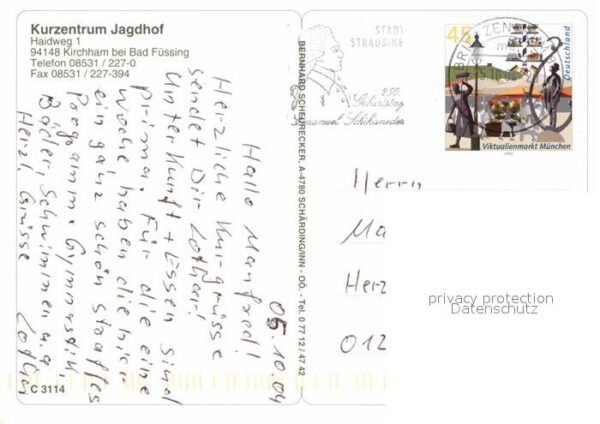 Kurzentrum Jagdhof
Haidweg 1
94148 Kirchham bei Bad Füssing
Telefon 08531 / 227-0
Fax 08531 / 227-394
05.10.04
Hallo Manfred!
Herzliche Kurgrüsse
sendet Dir Lothar!
Unterkunft + Essen sind
prima. Für die eine
Woche, haben die hier
ein ganz schön straffes
Programm. Gymnastik,
Bäder, Schwimmen u.a.
Herzl. Grüsse
Lothar
C 3114
BERNHARD SCHEURECKER, A-4780 SCHÄRDING/INN - OÖ. - Tel. 0 77 12 / 47 42
STADT
STRAUBING
250.
Geburtstag
Emanuel Schikaneder
BRIEFZENTRUM
45
Deutschland
Viktualienmarkt München
Herrn
Ma
Herz
012
privacy protection
Datenschutz